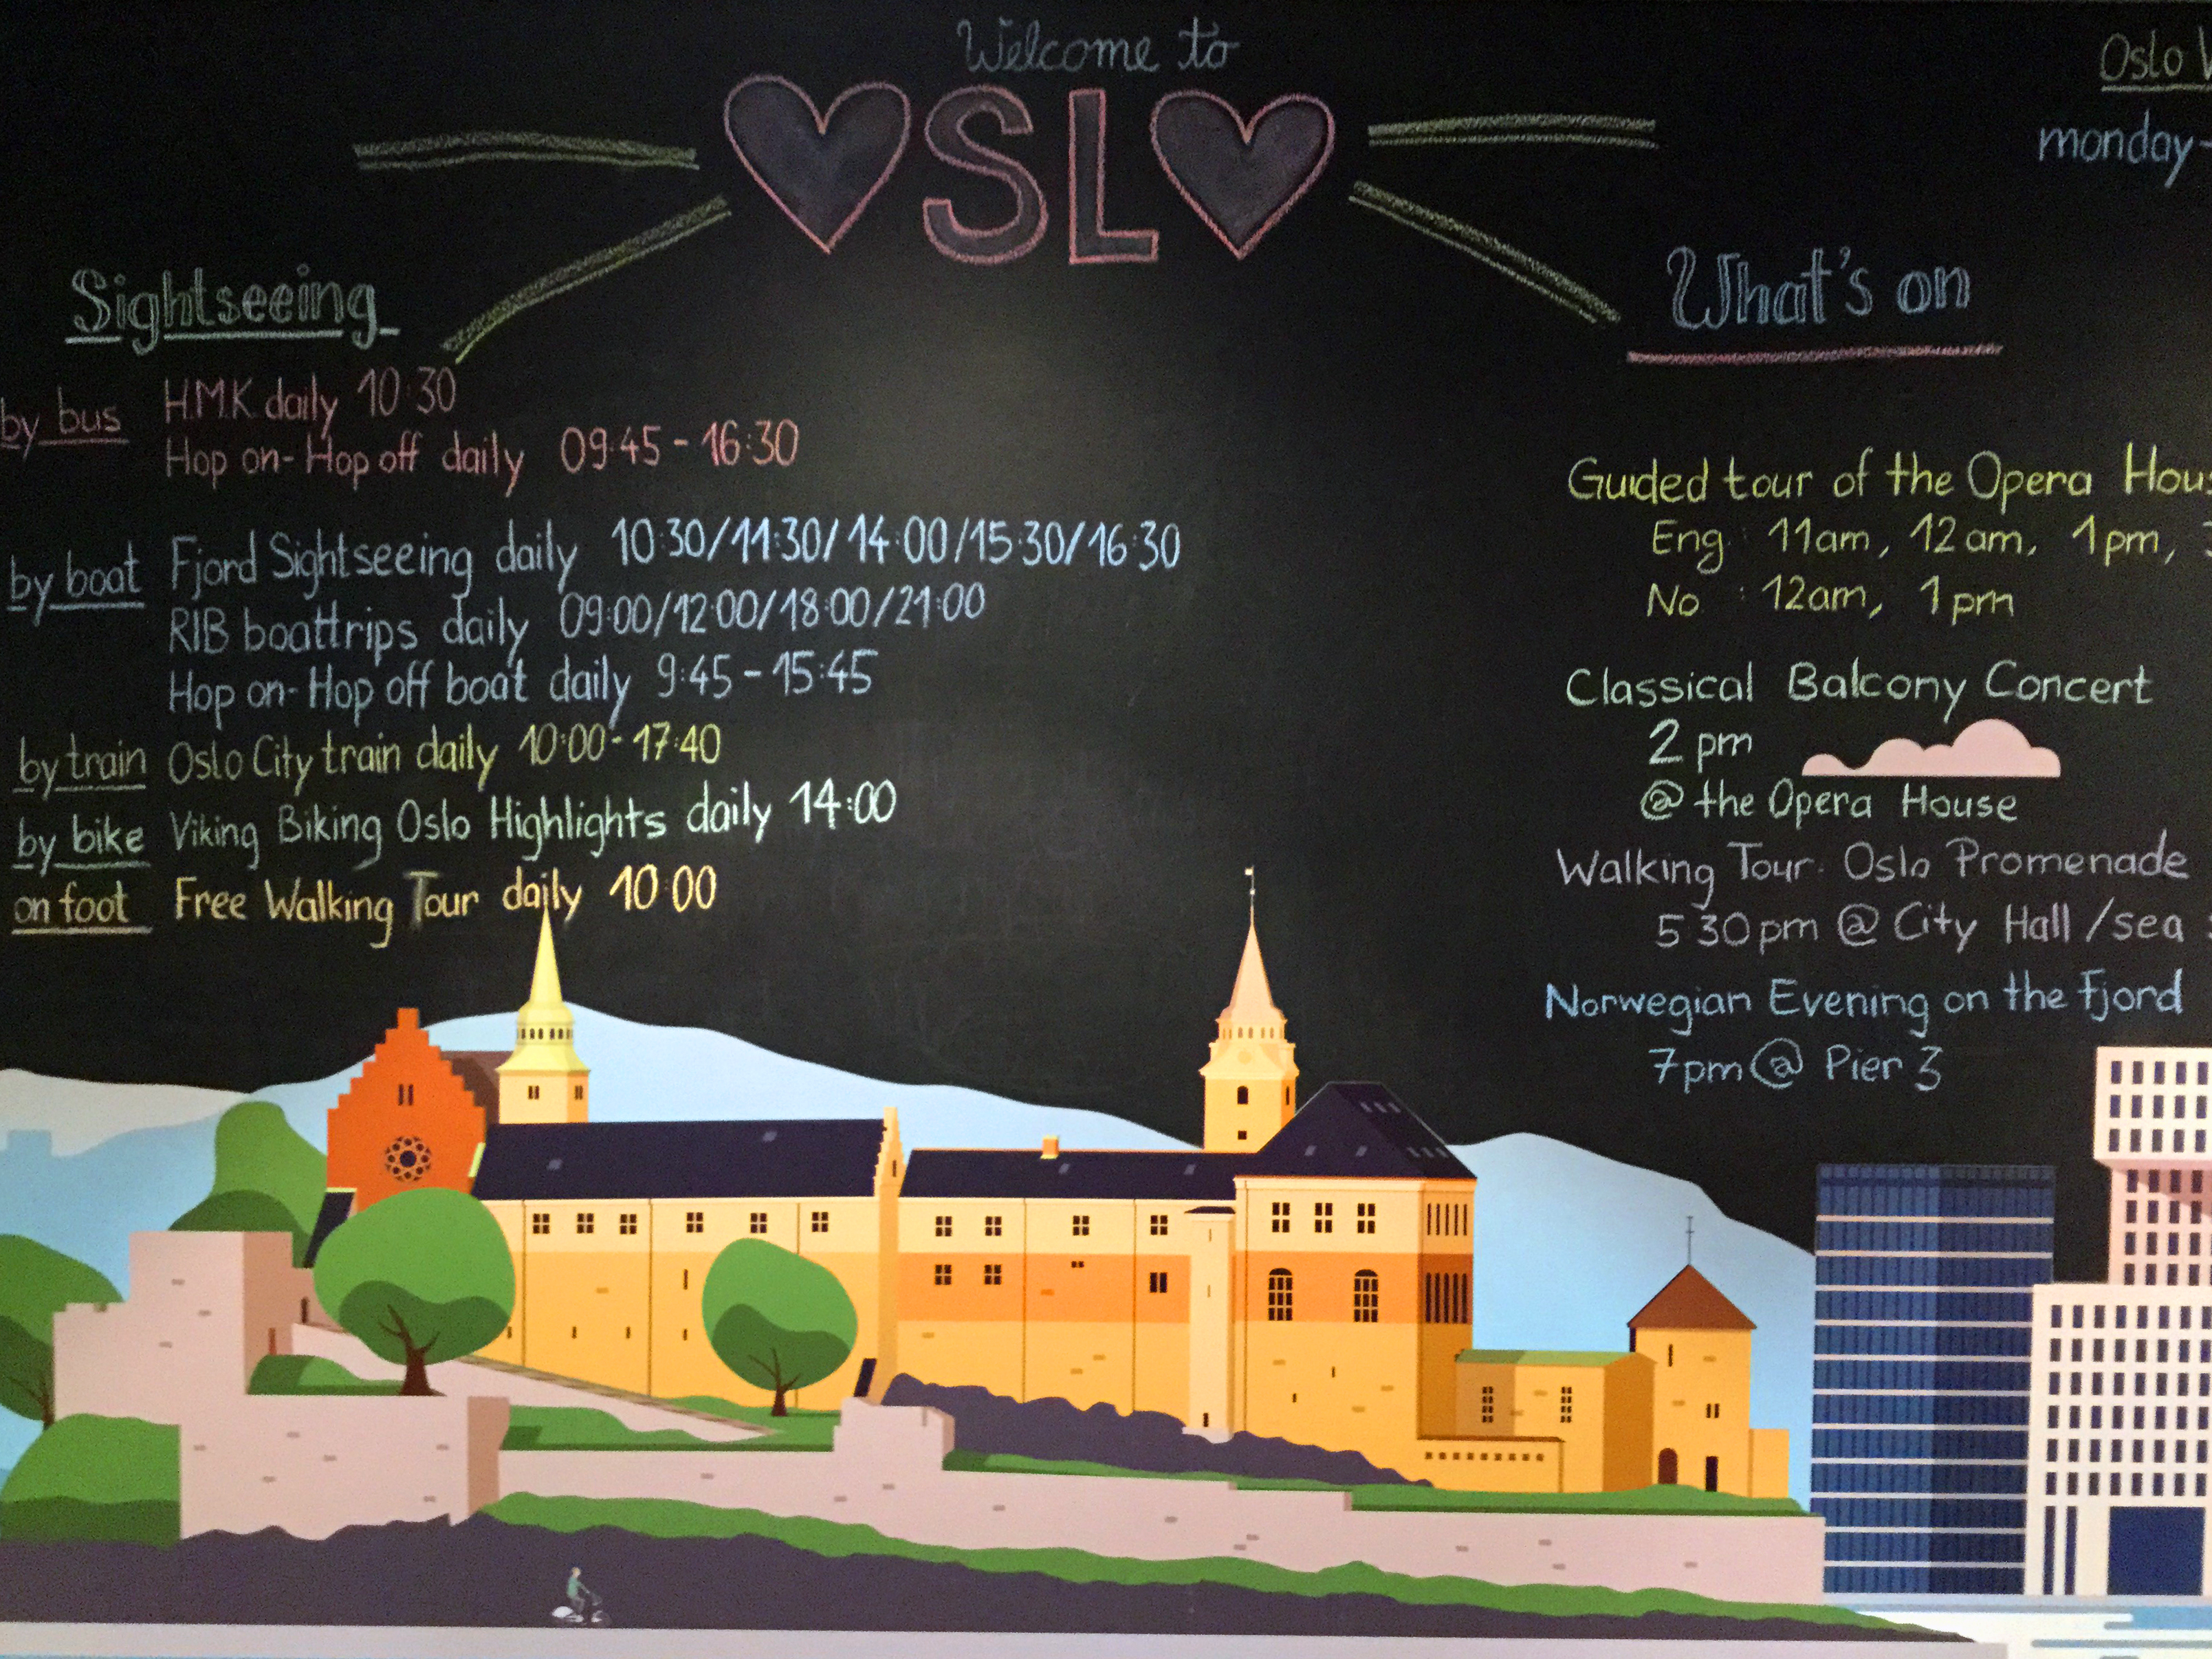 Welcome to
OSLO
Sightseeing
by bus H.M.K. daily 10:30
Hop on-Hop off daily 09:45 - 16:30
by boat Fjord Sightseeing daily 10:30/11:30/14:00/15:30/16:30
RIB boattrips daily 09:00/12:00/18:00/21:00
Hop on-Hop off boat daily 9:45 - 15:45
by train Oslo City train daily 10:00 - 17:40
by bike Viking Biking Oslo Highlights daily 14:00
on foot Free Walking Tour daily 10:00
Oslo
monday-
What's on
Guided tour of the Opera
Eng : 11am, 12am, 1pm,
No : 12am, 1pm
Classical Balcony Concert
2 pm
@ the Opera House
Walking Tour: Oslo Promenade
5:30pm @ City Hall /sea
Norwegian Evening on the fjord
7pm @ Pier 3